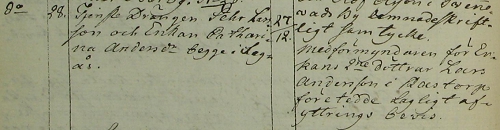 do 28. Tjenste Drängen Pehr Lars
son och Enkan Cathari
na Anders dr begge i Seg
ås.
27
12.
wads By lemnade skrift
ligt samtycke.
Medförmyndaren för En
kans 2ne döttrar Lars
Andersson i Åastorp
företedde lagligt af
yttrings bevis.